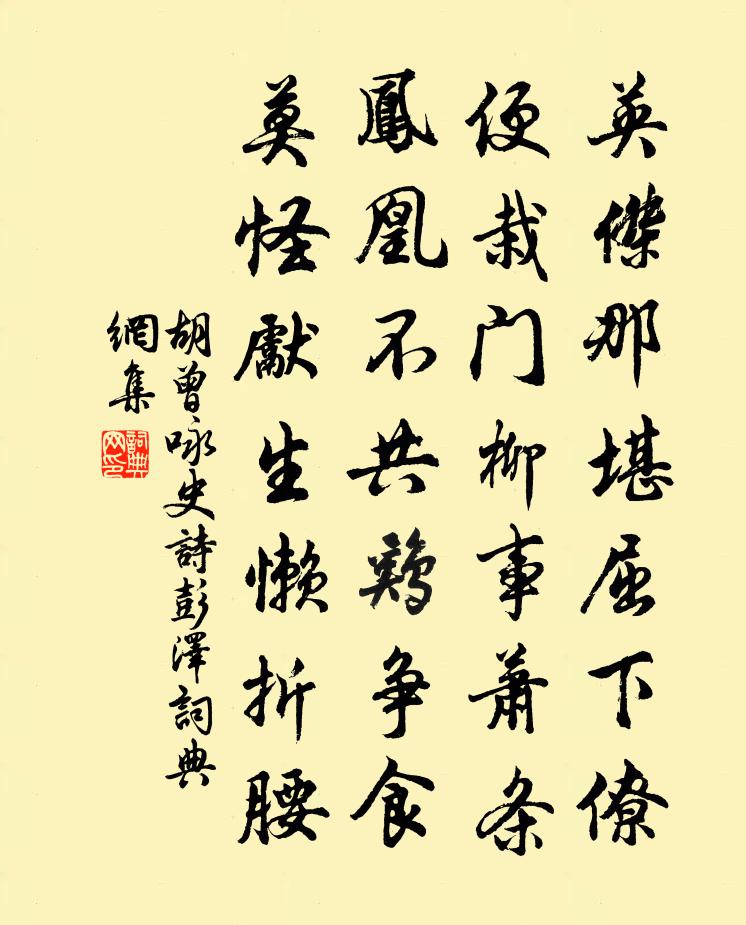 英傑那堪屈下僚
便栽門柳事蕭条
鳳凰不共鷄争食
莫怪獻生懶折腰
胡曾咏史詩彭澤詞典
網集
詞典网印